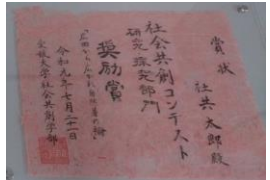 賞状
社共太郎殿
社会共創コンテスト
研究・探究部門
奨励賞
令和元年七月三十一日
愛媛大学社会共創学部